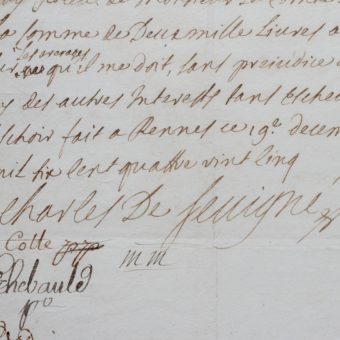 la somme de Deux mille livres a
les arerages
qu'il me doit, sans prejudice
des autres Interests tans Escheu
Eschoir fait a Rennes ce 19e decem
mil six cent quattre vint cinq
Charles De Sevigné
Cotte
Thebauld
mm